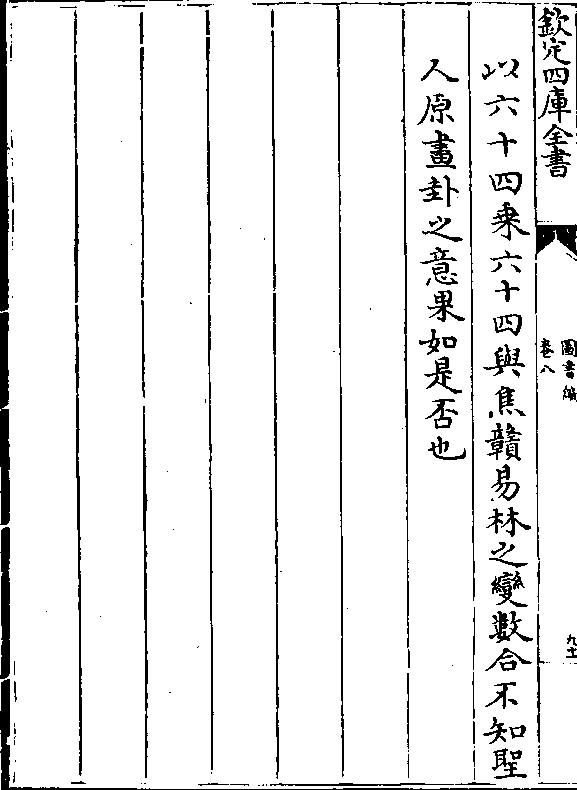 欽定四庫全書
圖書編
卷八
九十
以六十四乘六十四與焦贛易林之變數合不知聖
人原畫卦之意果如是否也